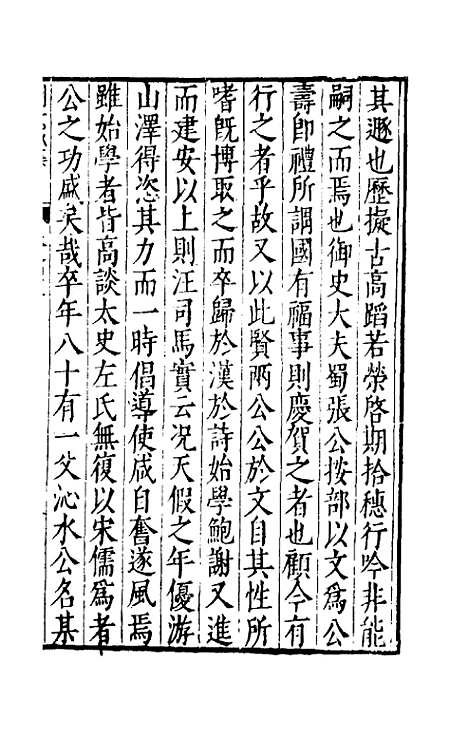 其遯也歷擬古高蹈若榮啓期拾穗行吟非能
嗣之而焉也御史大夫蜀張公按部以文爲公
壽卽禮所謂國有福事則慶賀之者也顧今有
行之者乎故又以此賢兩公公於文自其性所
嗜旣博取之而卒歸於漢於詩始學鮑謝又進
而建安以上則汪司馬實云况天假之年優游
山澤得恣其力而一時倡導使咸自奮遂風焉
雖始學者皆高談太史左氏無復以宋儒爲者
公之功盛矣哉卒年八十有一父沁水公名某